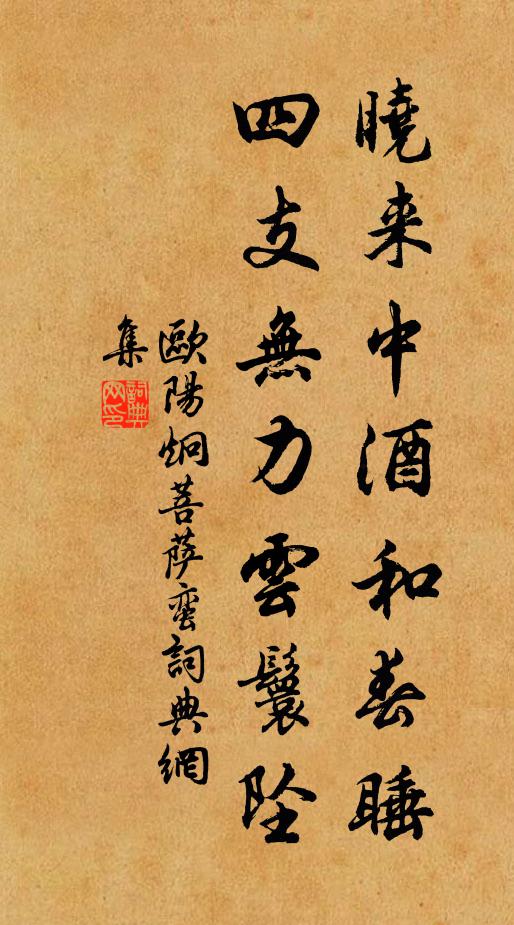 曉来中酒和春睡
四支無力雲鬟墜
歐陽炯菩薩蛮詞典網
集
詞典
网印